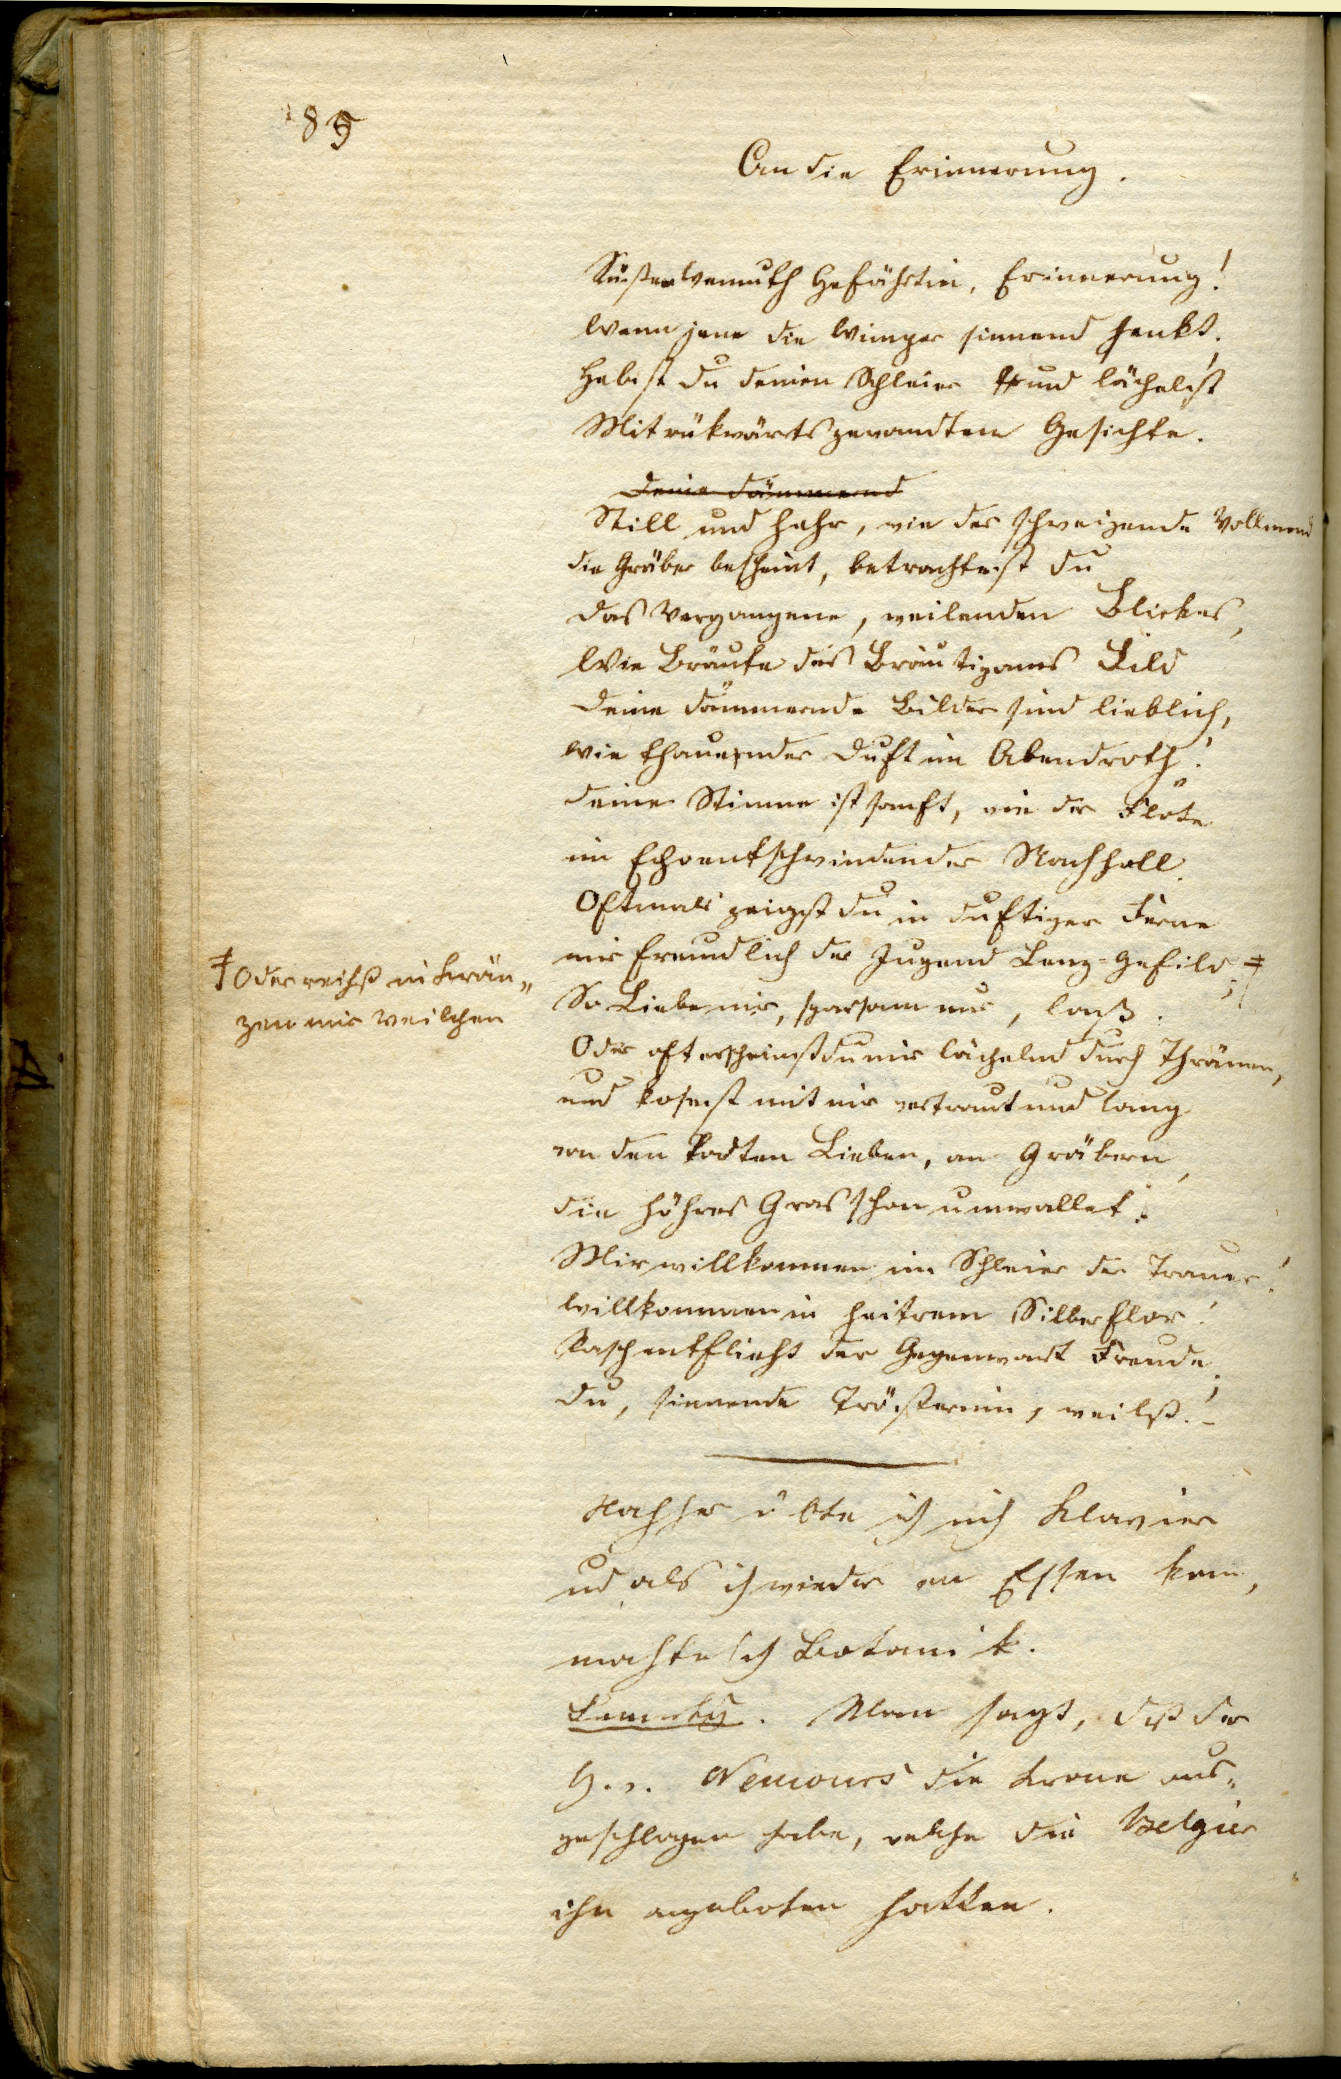 185
An die Erinnerung.
Süßer Wemuth Gefährtin, Erinnerung!
Wenn jene die Wimper sinnend senkt,
Hebest du deinen Schleier und lächelst
Mit rükwärtsgewandtem Gesichte.
Deine dämmernd
Still und hehr, wie der schweigende Vollmond
die Gräber bescheint, betrachtest du
das Vergangene, weilenden Blickes,
Wie Bräute des Bräutigams Bild
Deine dämmernde Bilder sind lieblich,
wie thauender Duft im Abendroth!
deine Stimme ist sanft, wie der Flöte
im Echo entschwindender Nachhall.
Oftmals zeigst du in duftiger Ferne
mir freundlich der Jugend Lenz-Gefild ‡
‡ Oder reihst in Krän„
zen mir Veilchen
So Liebe mir, sparsam nur, laß.
Oder oft erscheinst du mir lächelnd durch Thränen,
und kosest mit mir vertraut und lang
von den todten Lieben, an Gräbern,
die höhres Gras schon umwallet.
Mir willkommen im Schleier der Trauer!
willkommen in heitrem Silberflor!
Rasch entflieht der Gegenwart Freude,
du, sinnende Trösterinn, weilst!
Nachher übte ich mich Klavier
und als ich wieder vom Essen kam,
machte ich Botanik.
Man sagt, daß der
H. v. Nemours die Krone aus„
geschlagen habe, welche die Belgier
ihm angeboten hatten.